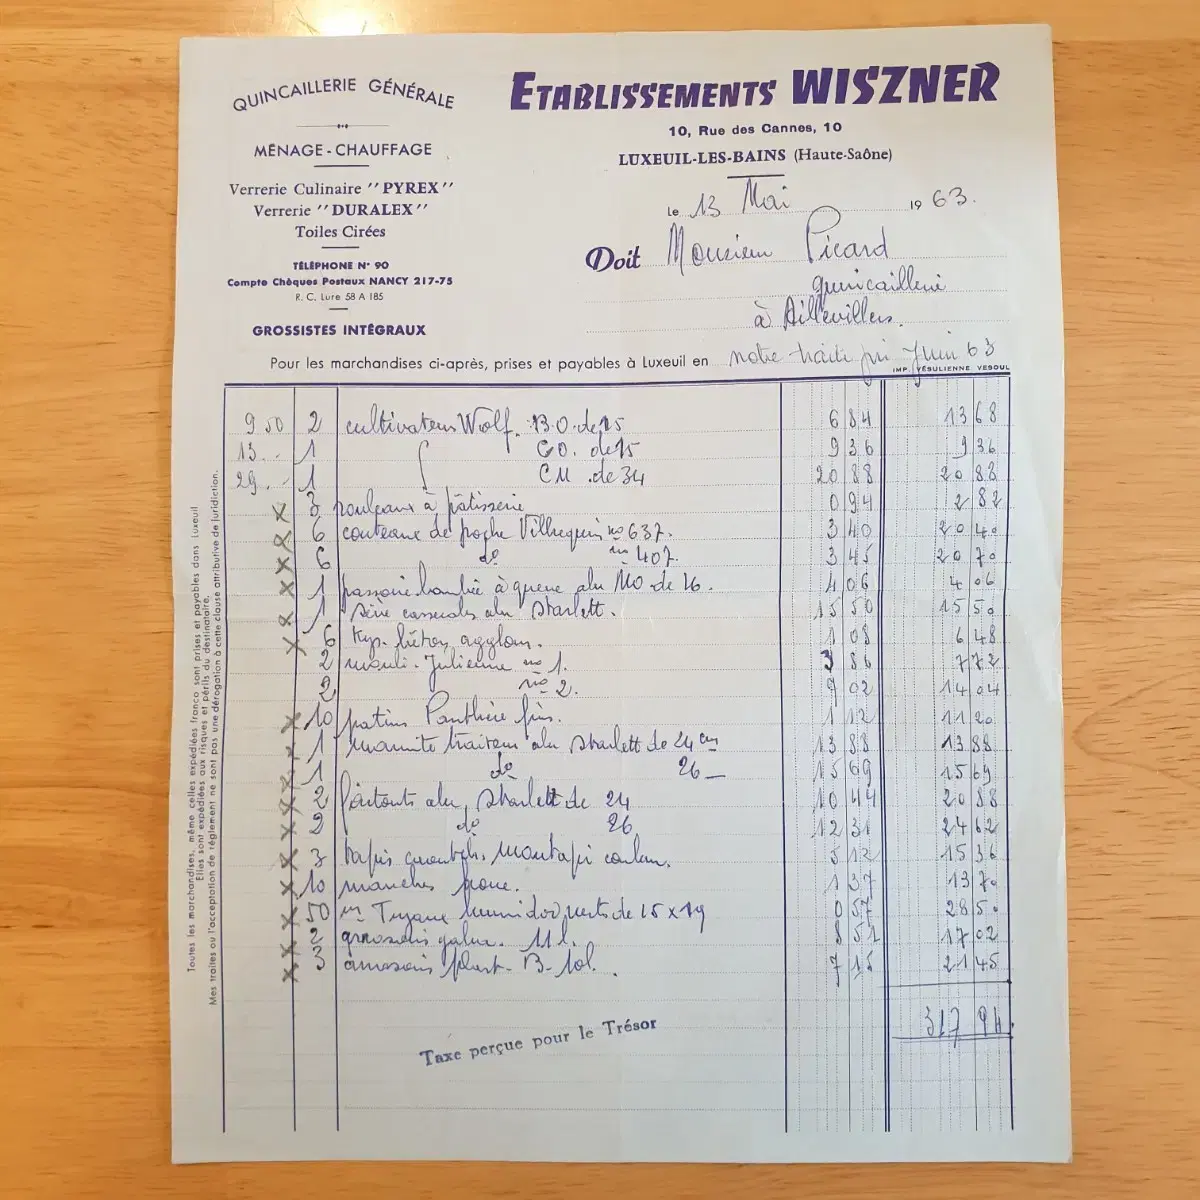 QUINCAILLERIE GÉNÉRALE
MÉNAGE - CHAUFFAGE
Verrerie Culinaire "PYREX"
Verrerie "DURALEX"
Toiles Cirées
TÉLÉPHONE N° 90
Compte Chèques Postaux NANCY 217-75
R. C. Lure 58 A 185
GROSSISTES INTÉGRAUX
ETABLISSEMENTS WISZNER
10, Rue des Cannes, 10
LUXEUIL-LES-BAINS (Haute-Saône)
le 13 Mai 1963.
Doit Monsieur Picard
quincaillerie
à Aillevillers.
Pour les marchandises ci-après, prises et payables à Luxeuil en notre traite fin Juin 63
IMP. VÉSULIENNE VESOUL
9 50 2 cultivateurs Wolf. B.O. de 15 6 84 13 68
13. - 1 CO. de 15 9 36 9 36
29. - 1 CM. de 34 20 88 20 88
x 3 rouleaux à pâtisserie 0 94 2 82
x 6 couteaux de poche Villequin no 637. 3 40 20 40
x 6 do no 407. 3 45 20 70
x 1 passoire bombée à queue alu MO de 26. 4 06 4 06
x 1 série casseroles alu Starlett. 15 50 15 50
x 6 agglom. 1 08 6 48
2 mouli-Julienne no 1. 3 86 7 72
2 no 2. 7 02 14 04
x 10 patins Panthère fins. 1 12 11 20
x 1 marmite traiteur alu Starlett de 24 cm 13 88 13 88
x 1 do 26 - 15 69 15 69
x 2 faitouts alu Starlett de 24 10 44 20 88
x 2 do 26 12 31 24 62
x 3 tapis 5 12 15 36
x 10 manches 1 37 13 70
x 50 m Tuyaux verts de 15 x 19 0 57 28 50
x 2 arrosoirs galva. 11 l. 8 51 17 02
x 3 arrosoirs plast. B. 10l. 7 15 21 45
317 94
Taxe perçue pour le Trésor
Toutes les marchandises, même celles expédiées franco sont prises et payables dans Luxeuil
Elles sont expédiées aux risques et périls du destinataire.
Mes traites ou l'acceptation de règlement ne sont pas une dérogation à cette clause attributive de juridiction.